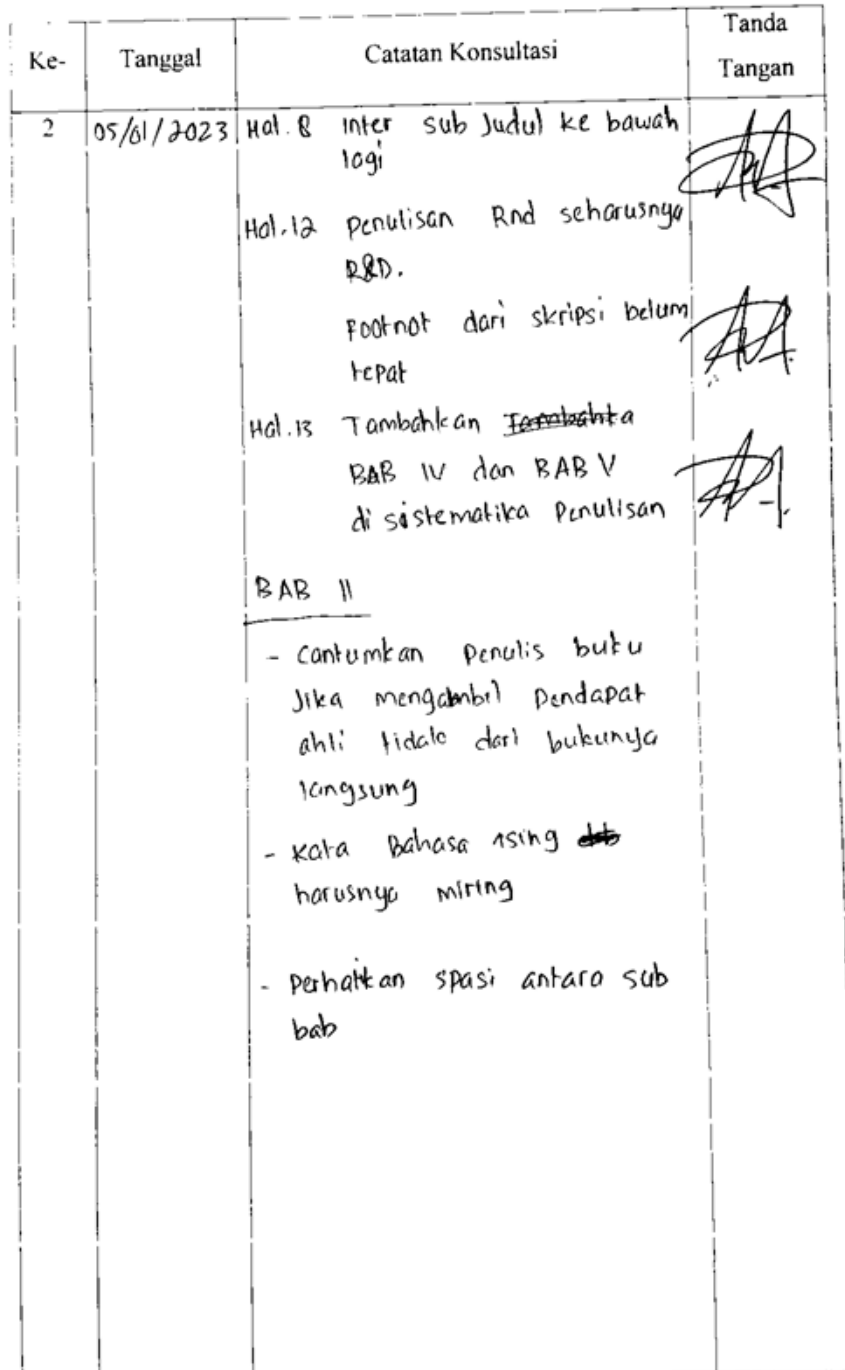 Ke- Tanggal Catatan Konsultasi Tanda Tangan
2 05/01/2023 Hal. 8 inter sub Judul ke bawah
lagi
Hal. 12 Penulisan Rnd seharusnya
R&D.
Footnot dari skripsi belum
tepat
Hal. 13 Tambahkan
BAB IV dan BAB V
di sistematika Penulisan
BAB II
- Cantumkan Penulis buku
Jika mengambil Pendapat
ahli tidak dari bukunya
langsung
- Kata Bahasa Asing
harusnya miring
- Perhatikan spasi antara sub
bab